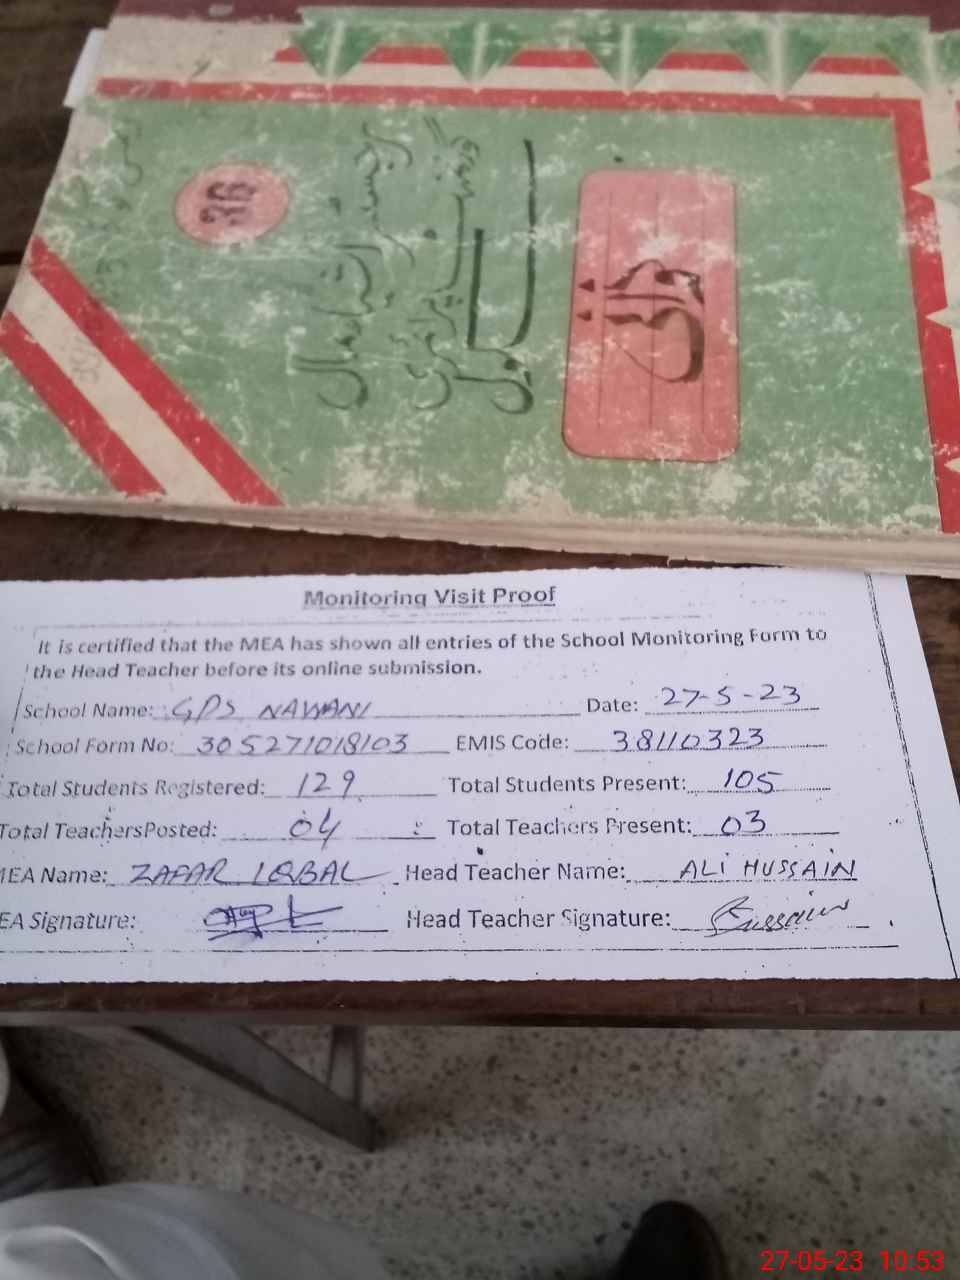 36
رجسٹر اتھارٹی
گورنمنٹ پرائمری
سکول
Monitoring Visit Proof
It is certified that the MEA has shown all entries of the School Monitoring Form to
the Head Teacher before its online submission.
School Name: GPS NAWANI Date: 27-5-23
School Form No: 305271018103 EMIS Code: 38110323
Total Students Registered: 129 Total Students Present: 105
Total TeachersPosted: 04 Total Teachers Present: 03
MEA Name: ZAFAR IQBAL Head Teacher Name: ALI HUSSAIN
EA Signature: Head Teacher Signature: Hussain
27-05-23 10:53